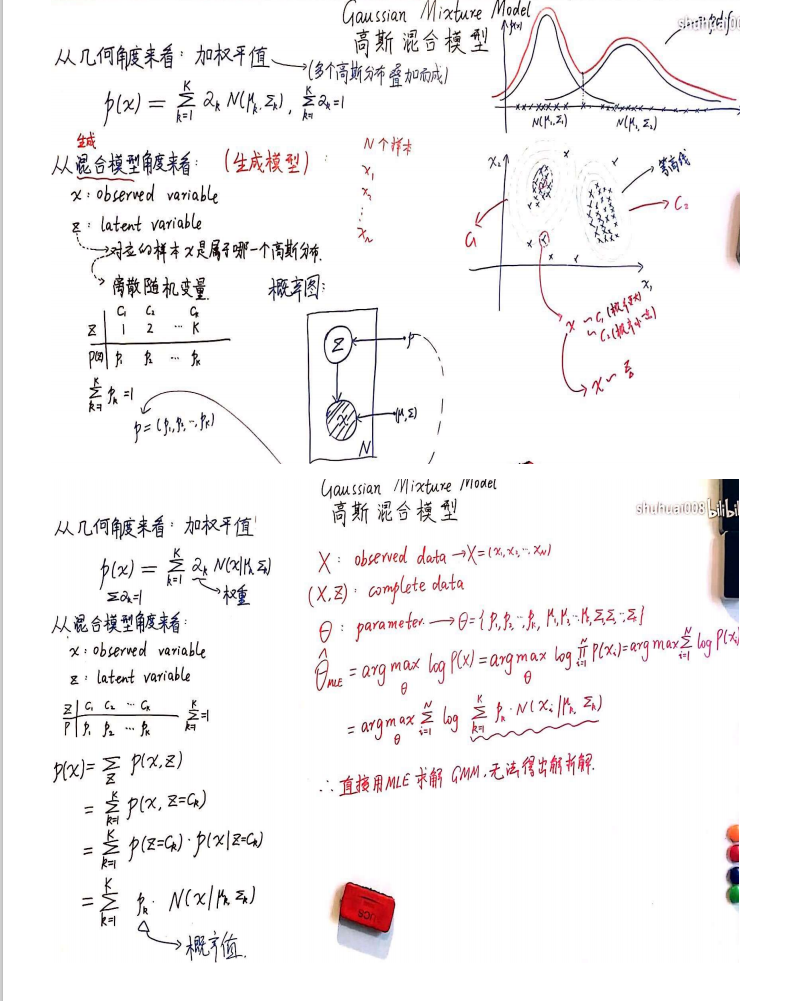 Gaussian Mixture Model
高斯混合模型
从几何角度来看: 加权平值
(多个高斯分布叠加而成)
p(x) = Σ_{k=1}^{K} α_k N(μ_k, Σ_k), Σ_{k=1}^{K} α_k = 1
生成
从混合模型角度来看: (生成模型):
x: observed variable
z: latent variable
对应的样本x是属于哪一个高斯分布.
离散随机变量
C₁ C₂ C_k
z 1 2 ... K
p(z) p₁ p₂ ... p_k
Σ_{k=1}^{K} p_k = 1
p = (p₁, p₂, ..., p_k)
N个样本
x₁
x₂
⋮
x_n
概率图:
Z
p
X
(μ, Σ)
N
p(x)
shuhuai00
pdf
N(μ₁, Σ₁)
N(μ₂, Σ₂)
x₂
等高线
C₁
C₂
x₁
x ~ C₁
~ C₂
x ~ z
Gaussian Mixture Model
高斯混合模型
shuhuai008 bilibil
从几何角度来看: 加权平值
p(x) = Σ_{k=1}^{K} α_k N(x|μ, Σ_k)
Σα_k=1
权重
从混合模型角度来看:
x: observed variable
z: latent variable
z C₁ C₂ ... C_k
p p₁ p₂ ... p_k
Σ_{k=1}^{K} = 1
p(x) = Σ_z p(x, z)
= Σ_{k=1}^{K} p(x, z=C_k)
= Σ_{k=1}^{K} p(z=C_k) · p(x|z=C_k)
= Σ_{k=1}^{K} p_k · N(x|μ_k, Σ_k)
概率值.
X: observed data → X = (x₁, x₂, ..., x_N)
(X, Z): complete data
θ: parameter. → θ = {p₁, p₂, ..., p_k, μ₁, μ₂, ..., μ_k, Σ₁, Σ₂, ..., Σ_k}
θ̂_MLE = arg max_θ log P(X) = arg max_θ log ∏_{i=1}^{N} P(x_i) = arg max Σ_{i=1}^{N} log P(x_i)
= arg max_θ Σ_{i=1}^{N} log Σ_{k=1}^{K} p_k · N(x_i|μ_k, Σ_k)
∴ 直接用MLE求解GMM, 无法得出解析解.